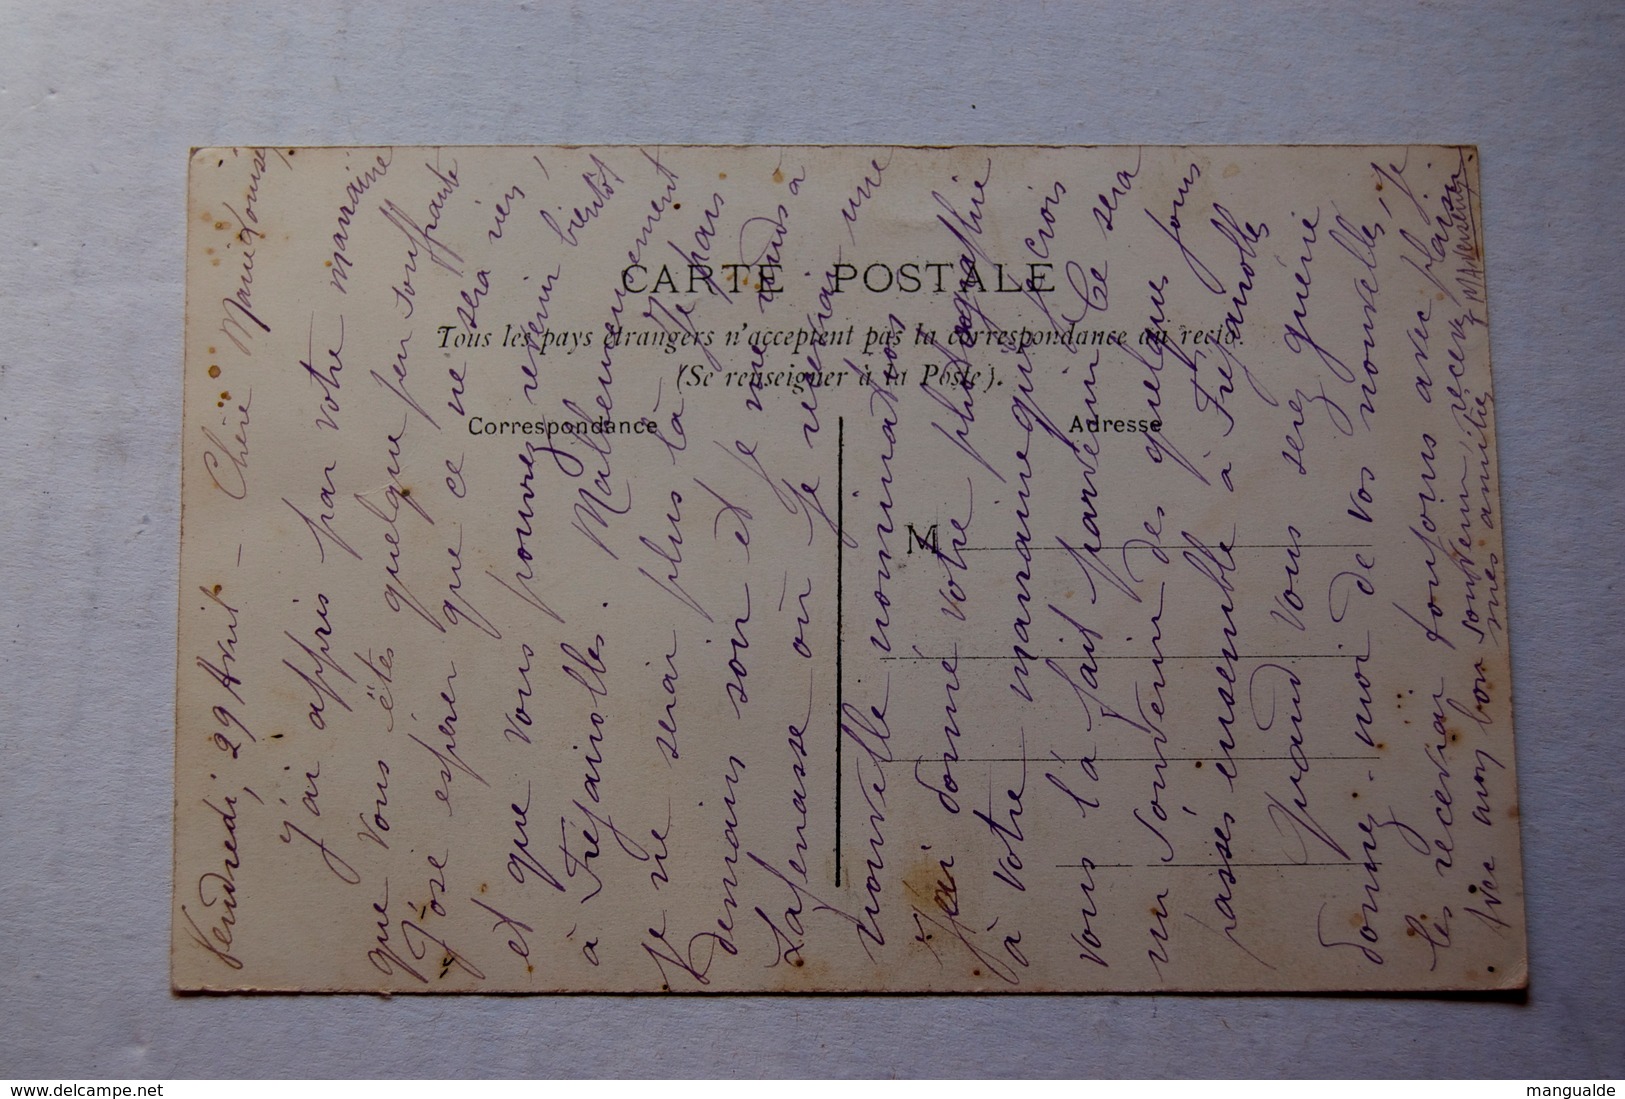 CARTE POSTALE
Tous les pays étrangers n'acceptent pas la correspondance au recto.
(Se renseigner à la Poste).
Correspondance
Adresse
M
Vendredi, 29 Avril - Chère
J'ai appris par votre marraine
que vous êtes quelque peu souffrante
J'ose espérer que ce ne sera rien,
et que vous pouvez revenir bientôt
à Fréjairolles. Malheureusement
je ne serai plus là. Je pars
demain soir et je me rends à
où je recevrai une
nouvelle nomination
J'ai donné votre photographie
à votre marraine qui je crois
vous l'a fait parvenir. Ce sera
un souvenir des quelques jours
passés ensemble à Fréjairolles
Quand vous serez guérie
donnez-moi de vos nouvelles, je
les recevrai toujours avec plaisir
Avec mon bon souvenir, recevez
mes amitiés
www.delcampe.net
mangualde